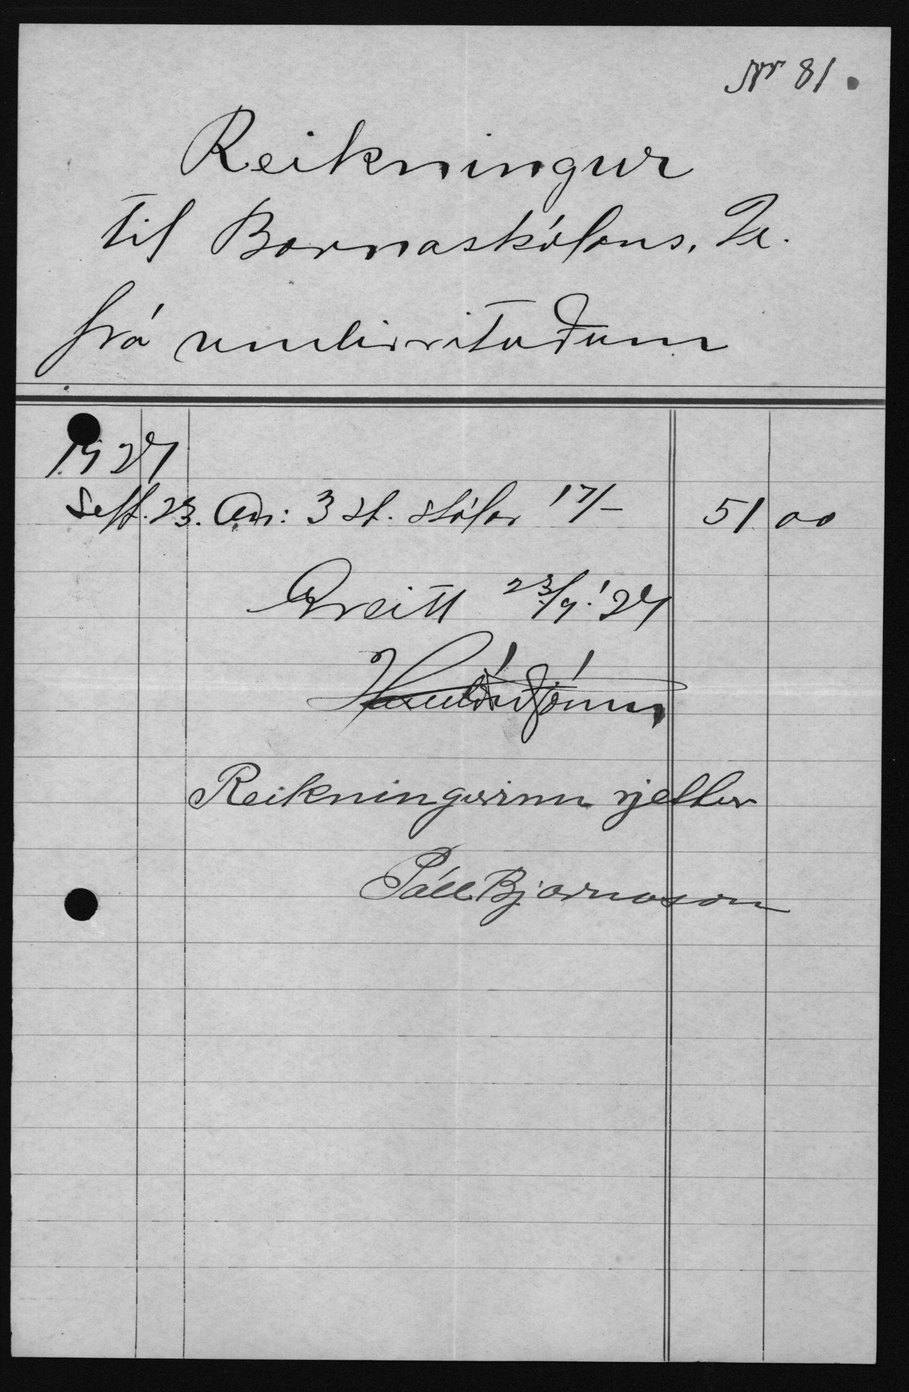 Nr 81.
Reikningur
til Barnaskólans, Ve.
frá undirrituðum
1927
Sept. 23. An: 3 st. stólar 17/- 51 00
Greitt 23/9.'27
Reikningurinn rjettur
Páll Bjarnason